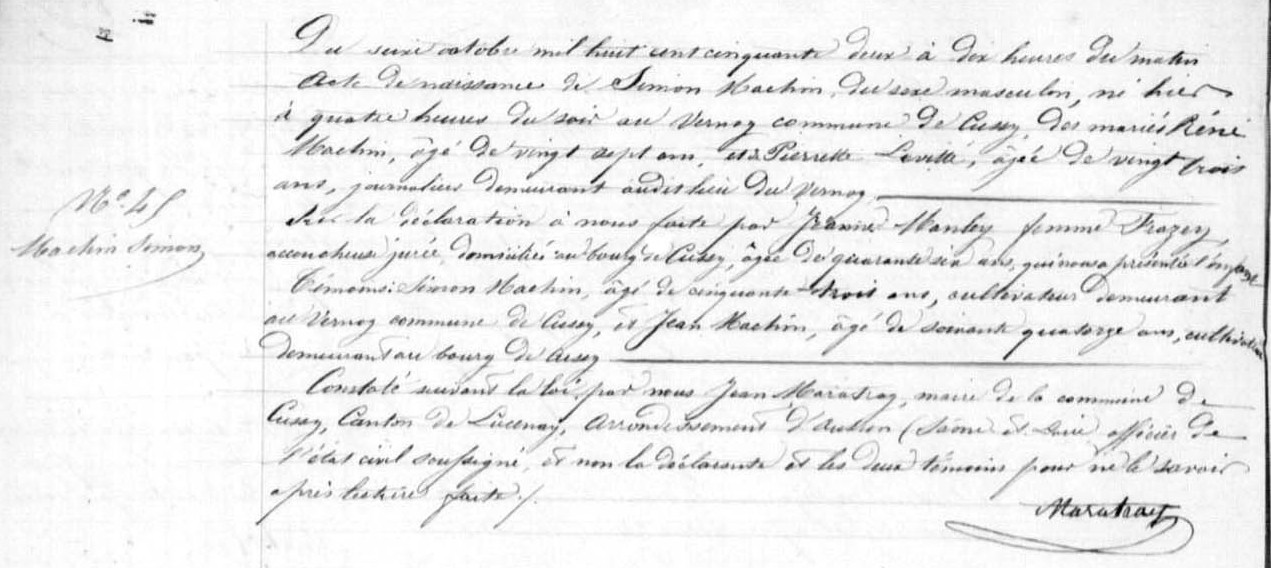 Du seize octobre mil huit cent cinquante deux à dix heures du matin
Acte de naissance de Simon Machin, du sexe masculin, né hier
à quatre heures du soir au Vernoy commune de Cussy, des mariés Réné
Machin, âgé de vingt sept ans, et Pierrette Levitté, âgée de vingt trois
ans, journaliers demeurant audit lieu du Vernoy
N° 45
Machin Simon
Sur la déclaration à nous faite par Jeanne Manley femme Frazey,
accoucheuse jurée, domiciliée au bourg de Cussy, âgée de quarante six ans, qui nous a présenté l'enfant
Témoins: Simon Machin, âgé de cinquante trois ans, cultivateur demeurant
au Vernoy commune de Cussy, et Jean Machin, âgé de soixante quatorze ans, cultivateur
demeurant au bourg de Cussy
Constaté suivant la loi, par nous Jean Maratray, maire de la commune de
Cussy, Canton de Lucenay, arrondissement d'Autun (Saône et Loire) officier de
l'état civil soussigné, et non la déclarante et les deux témoins pour ne le savoir
après lecture faite ./.
Maratray